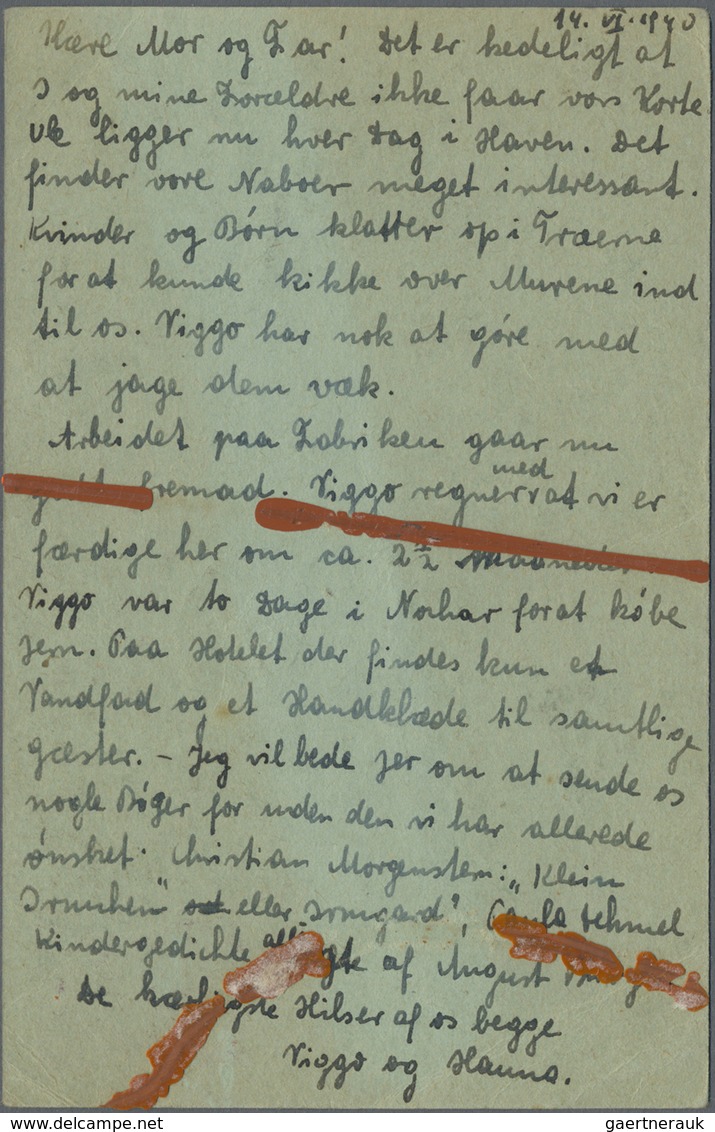 14. VI. 1940
Kære Mor og Far! Det er kedeligt at
I og mine Forældre ikke faar vors Korte
ligger nu hver Dag i Haven. Det
finder vore Naboer meget interessant.
Kvinder og Børn klatter op i Træerne
for at kunde kikke over Murene ind
til os. Viggo har nok at gøre med
at jage dem væk.
Arbeidet paa Fabriken gaar nu
godt fremad. Viggo regner med at vi er
færdige her om ca. 2 1/2 Maaneder.
Viggo var to Dage i for at købe
Jern. Paa Hotelet der findes kun et
Vandfad og et Handklæde til samtlige
gæster. – Jeg vil bede Jer om at sende os
nogle Bøger for uden den vi har allerede
ønsket. Christian Morgenstern: „Klein
Irmchen" eller „Irmgard", Paula Dehmel
Kindergedichte af August
De kærligste Hilser af os begge
Viggo og Hanna.
gaertnerauk